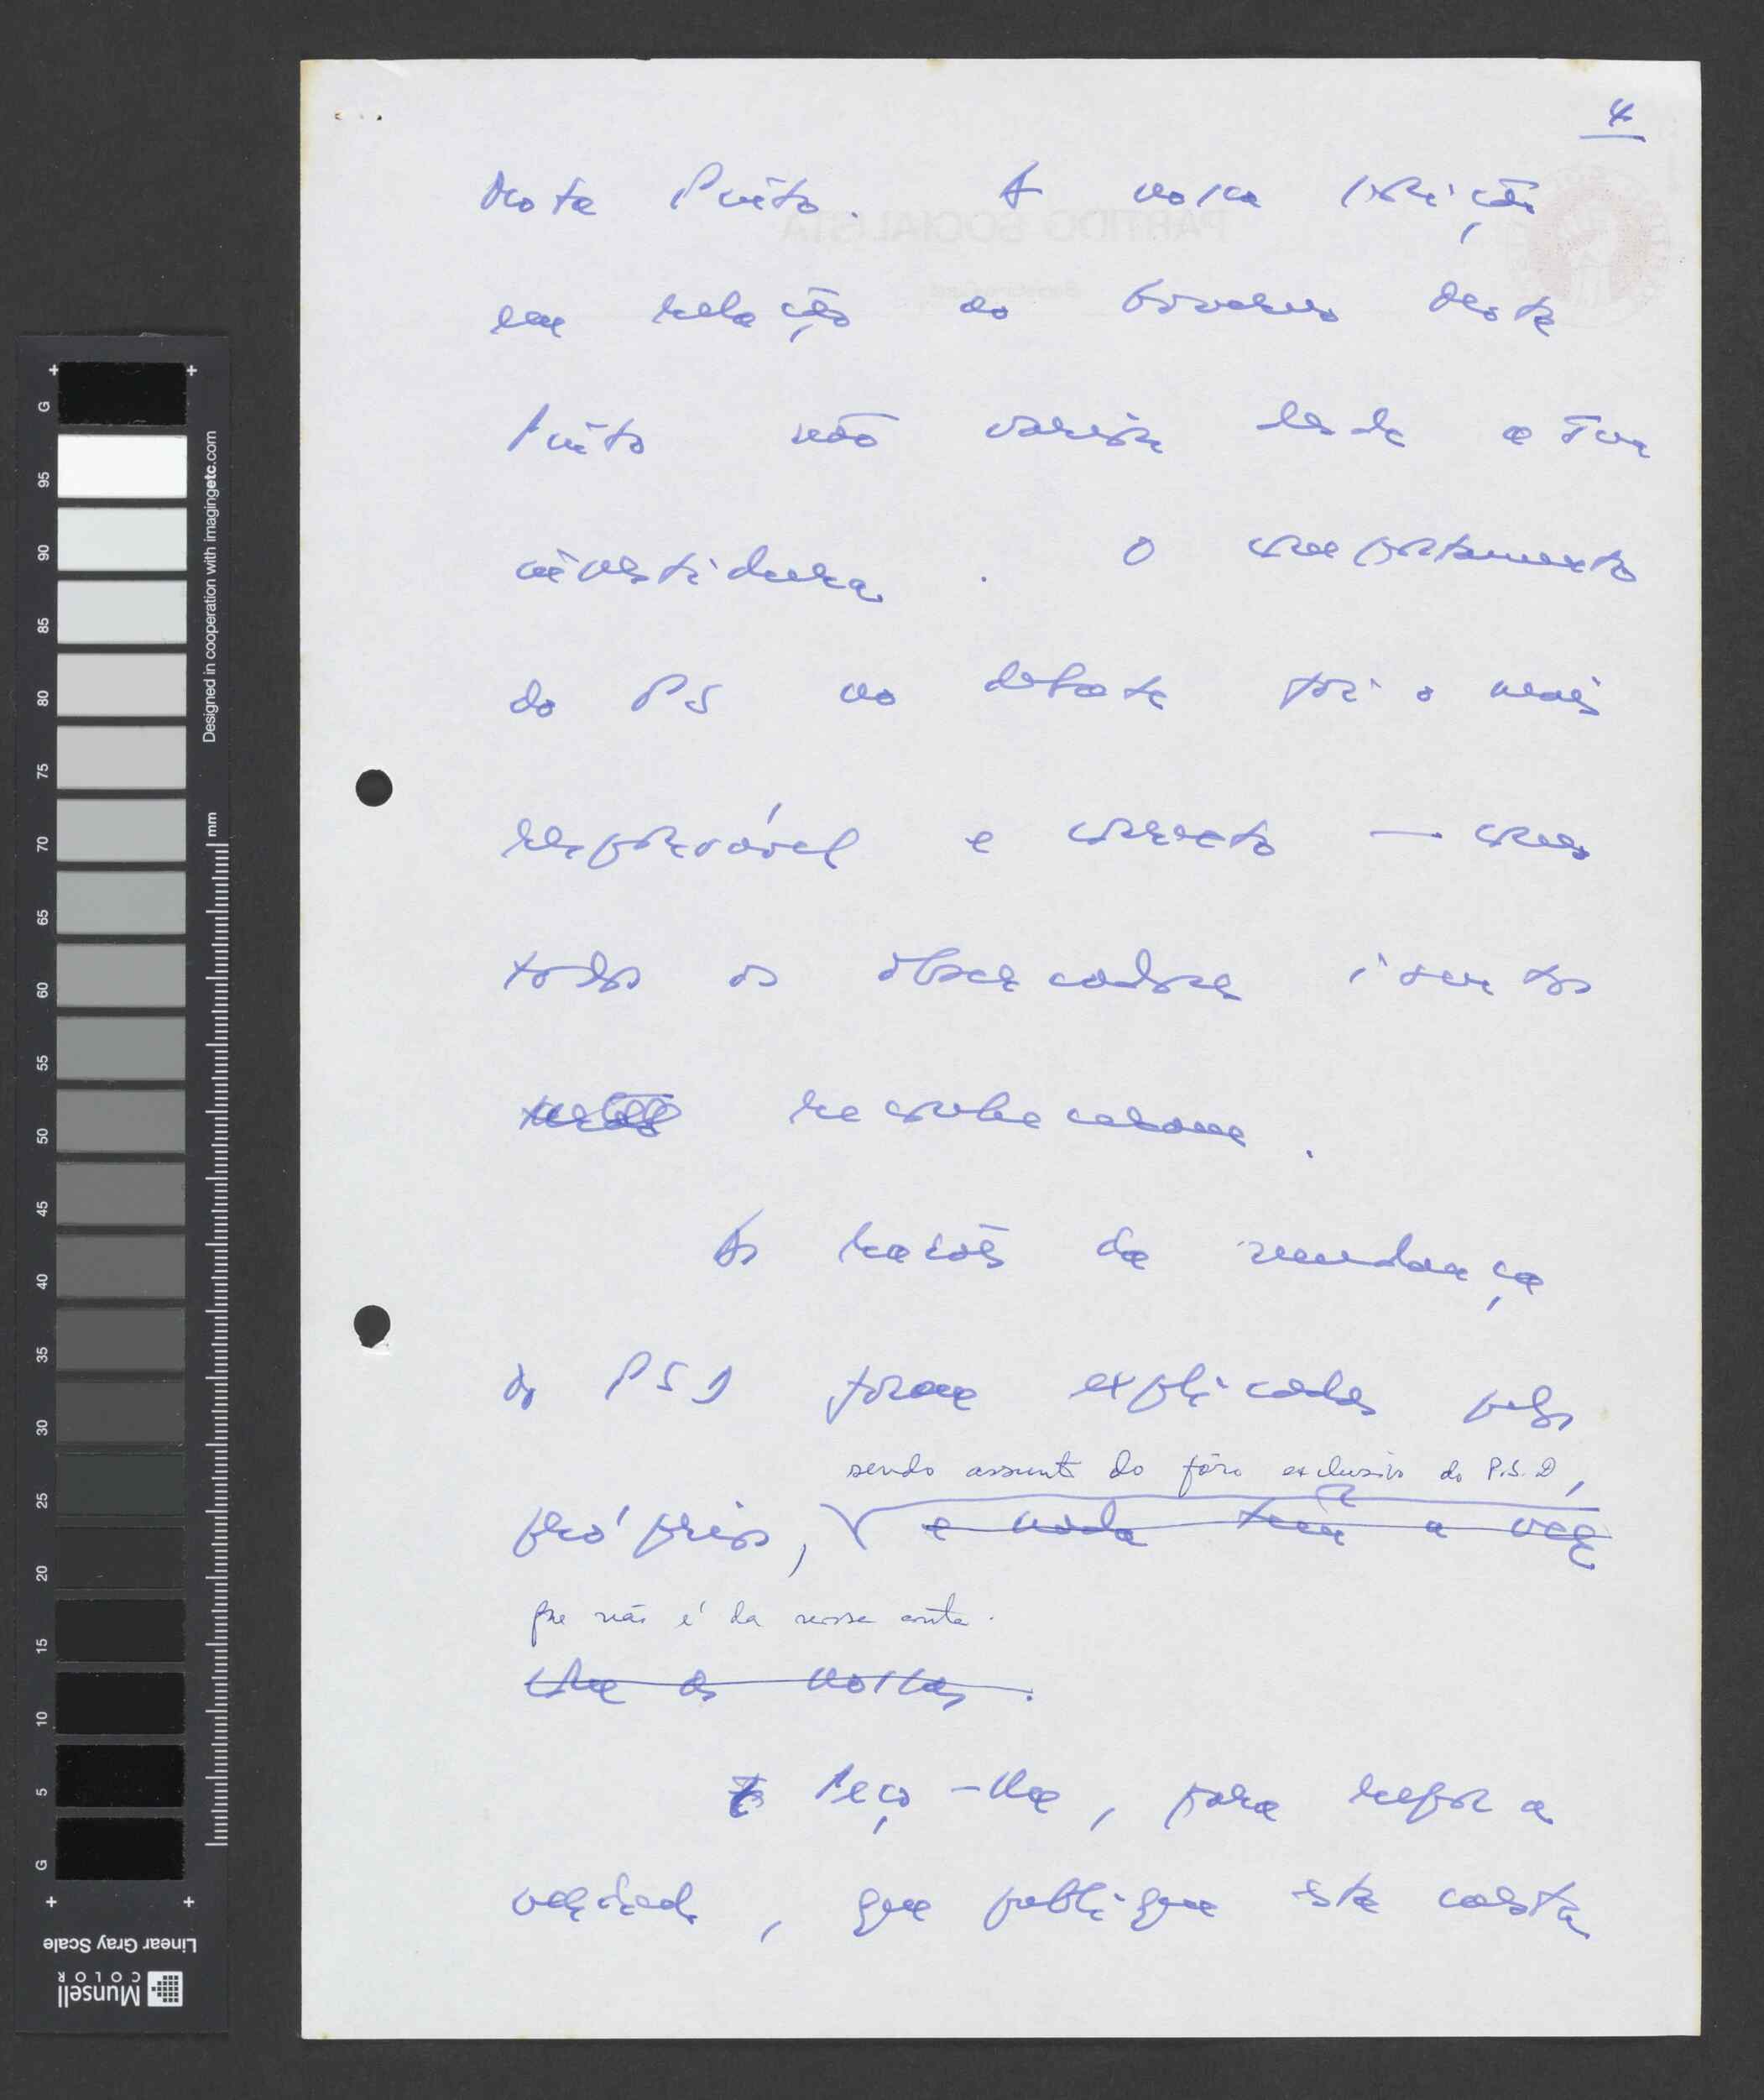 4
Mota Pinto. A nossa posição
em relação ao Governo Mota
Pinto não variou desde a sua
investidura. O comportamento
do PS no debate foi o mais
responsável e correcto — como
todos os observadores isentos
reconheceram.
As razões da mudança
do PSD foram explicadas pelos
sendo assunto do fôro exclusivo do P.S.D,
próprios, e nada tem a ver
que não é da nossa conta.
com as nossas.
Peço-lhe, para repor a
verdade, que publique esta carta
PARTIDO SOCIALISTA
G
95
90
85
80
75
70
65
60
55
50
45
40
35
30
25
20
15
10
5
G
Designed in cooperation with imagingetc.com
mm
Linear Gray Scale
Munsell
COLOR